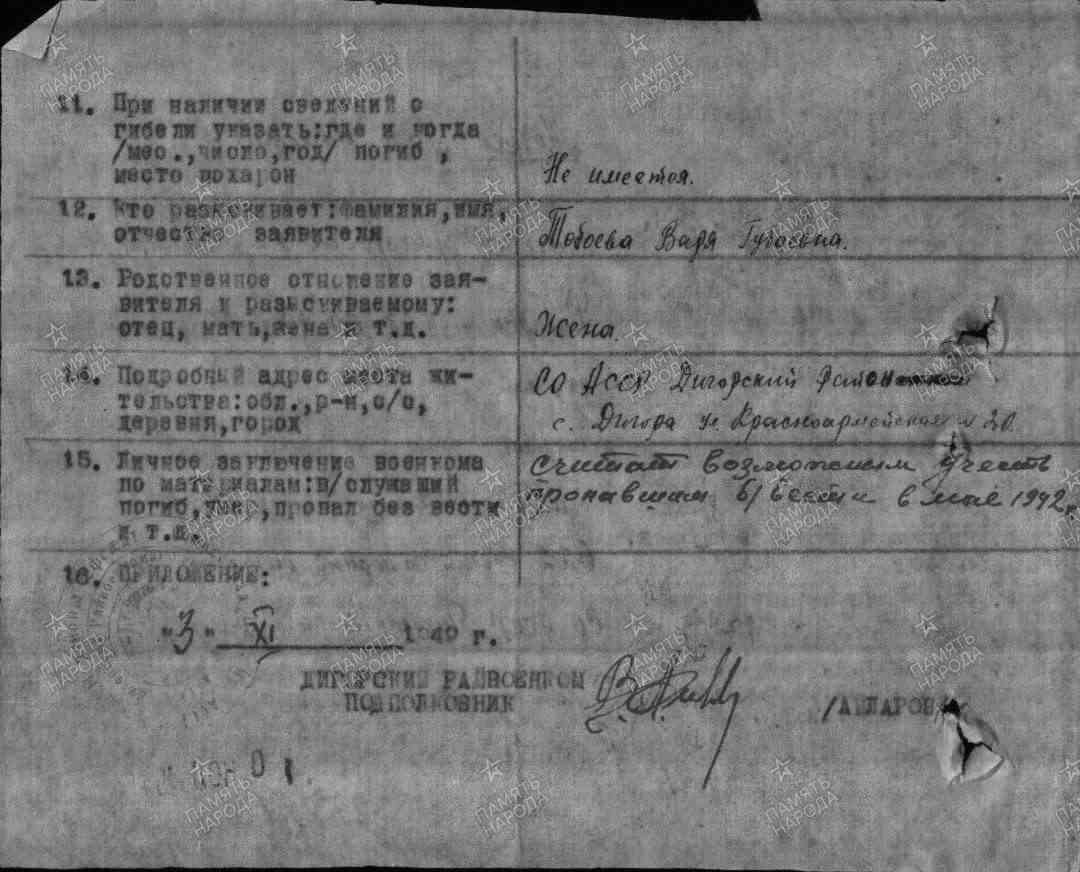 11. При наличии сведений о
гибели указать:где и когда
/мес.,число,год/ погиб ,
место похарон
Не имеется.
12. Кто разыскивает:фамилия,имя,
отчество заявителя
Тобоева Варя Губаевна.
13. Родственное отношение зая-
вителя к разыскиваемому:
отец, мать,жена и т.д.
Жена.
14. Подробный адрес места жи-
тельства:обл.,р-н,с/с,
деревня,город
СО АССР Дигорский район
с. Дигора ул. Красноармейская № 20.
15. Личное заключение военкома
по материалам:в/служавший
погиб,умер,пропал без вести
и т.д.
считат возможным учесть
пропавшим б/вести в мае 1942 г.
16. ПРИЛОЖЕНИЕ:
"3" XI 194 г.
ДИГОРСКИЙ РАЙВОЕНКОМ
ПОДПОЛКОВНИК
ПАМЯТЬ
НАРОДА